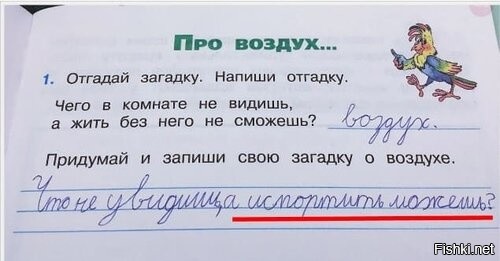 Про воздух...
1. Отгадай загадку. Напиши отгадку.
Чего в комнате не видишь,
а жить без него не сможешь? воздух.
Придумай и запиши свою загадку о воздухе.
Что не увидища испортить можешь?
Fishki.net